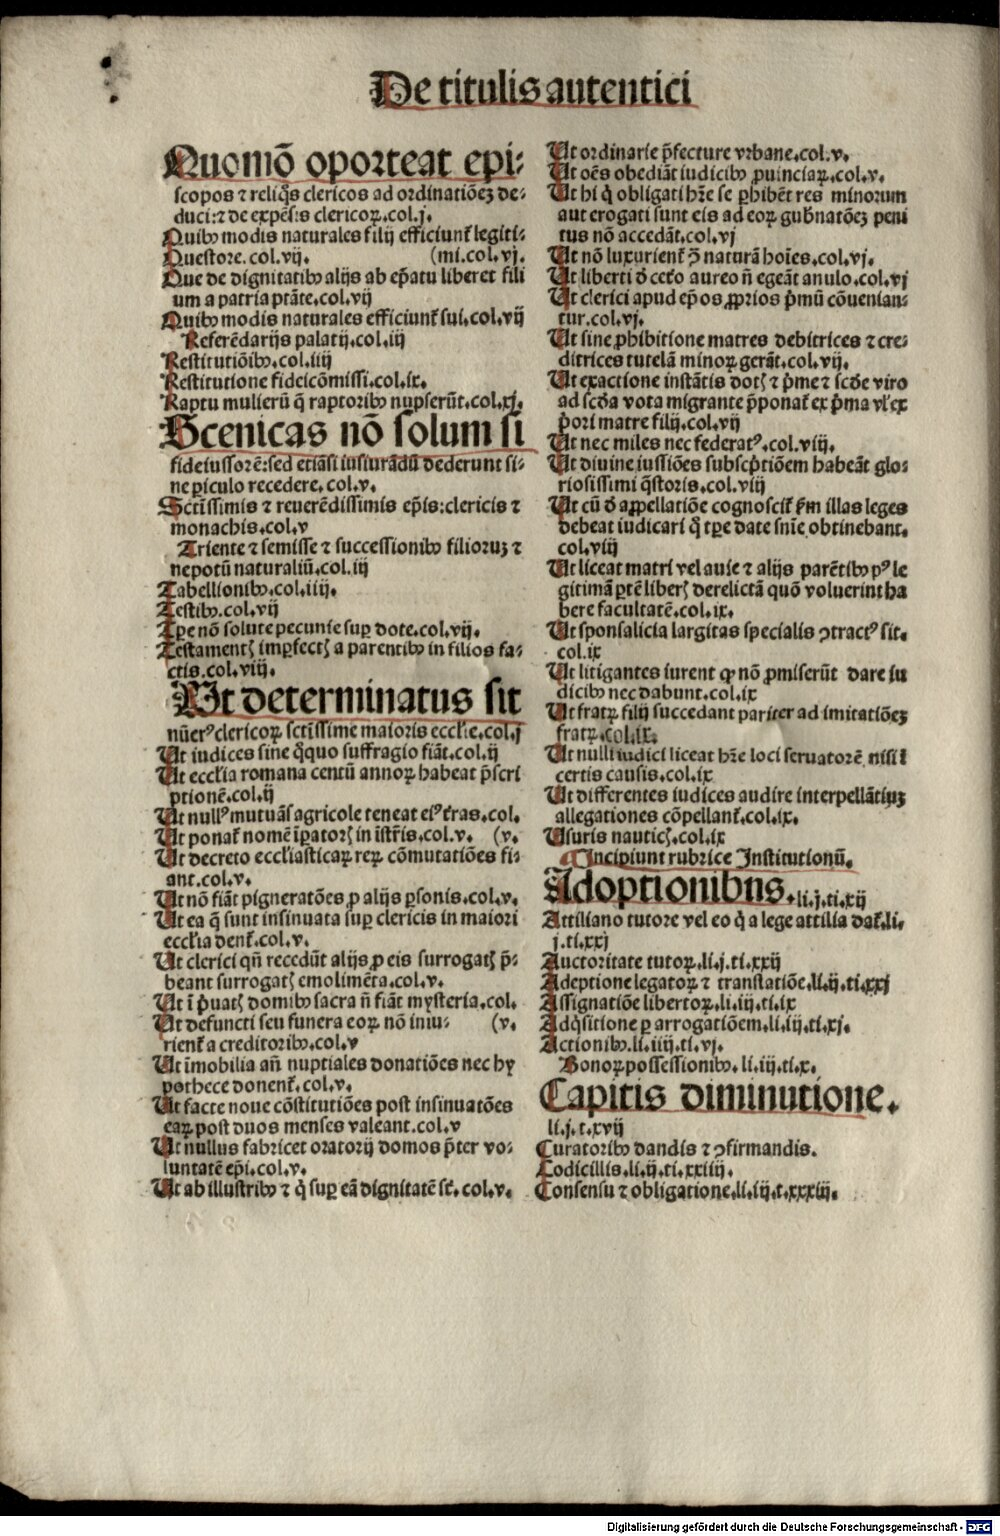 De titulis autentici
Quomō oporteat epi⸗
scopos ⁊ reliq̄s clericos ad ordinatiōeꝫ de⸗
duci:⁊ de expēsis clericoꝝ.col.j.
Quibꝰ modis naturales filij efficiunt̄ legiti⸗
Questore.col.vij. (mi.col.vj.
Que de dignitatibꝰ alijs ab ep̄atu liberet fili
um a patria ptāte.col.vij
Quibꝰ modis naturales efficiunt̄ sui.col.vij
Referēdarijs palatij.col.iij
Restitutiōibꝰ.col.iiij
Restitutione fideicōmissi.col.ix.
Raptu mulierū q̄ raptoribꝰ nupserūt.col.xj.
Scenicas nō solum si
fideiussorē:sed etiāsi iusiurādū dederunt si⸗
ne ꝑiculo recedere.col.v.
Sctīssimis ⁊ reuerēdissimis ep̄is:clericis ⁊
monachis.col.v
Triente ⁊ semisse ⁊ successionibꝰ filioruꝫ ⁊
nepotū naturaliū.col.iij
Tabellionibꝰ.col.iiij.
Testibꝰ.col.vij
Tꝑe nō solute pecunie suꝑ dote.col.vij.
Testament; imꝑfect; a parentibꝰ in filios fa⸗
ctis.col.viij.
Ut determinatus sit
nūerꝰ clericoꝝ sctīssime maioris eccl'ie.col.j
Ut iudices sine q̄quo suffragio fiāt.col.ij
Ut eccl'ia romana centū annoꝝ habeat p̄scri
ptionē.col.ij
Ut nullꝰ mutuās agricole teneat eiꝰ t̄ras.col.
Ut ponat̄ nomē īꝑator; in īstr̄is.col.v. (v.
Ut decreto eccl'iasticaꝝ reꝝ cōmutatiōes fi⸗
ant.col.v.
Ut nō fiāt pigneratōes ꝓ alijs ꝑsonis.col.v.
Ut ea q̄ sunt insinuata suꝑ clericis in maiori
eccl'ia dent̄.col.v.
Ut clerici qn̄ recedūt alijs ꝓ eis surrogat; p̄⸗
beant surrogat; emolimēta.col.v.
Ut ī p̄uat; domibꝰ sacra n̄ fiāt mysteria.col.
Ut defuncti seu funera eoꝝ nō iniu⸗ (v.
rient̄ a creditoribꝰ.col.v
Ut īmobilia an̄ nuptiales donatiōes nec hy
pothece donent̄.col.v.
Ut facte noue cōstitutiōes post insinuatōes
eaꝝ post duos menses valeant.col.v
Ut nullus fabricet oratorij domos p̄ter vo⸗
luntatē ep̄i.col.v.
Ut ab illustribꝰ ⁊ q̄ suꝑ eā dignitatē st̄.col.v.
Ut ordinarie p̄fecture vrbane.col.v.
Ut oēs obediāt iudicibꝰ ꝓuinciaꝝ.col.v.
Ut hi q̇ obligati hr̄e se ꝑhibēt res minorum
aut erogati sunt eis ad eoꝝ gub̄natōeꝫ peni
tus nō accedāt.col.vj
Ut nō luxurient̄ ꝯ̄ naturā hoīes.col.vj.
Ut liberti d̄ cet̄o aureo n̄ egeāt anulo.col.vj
Ut clerici apud ep̄os ꝓprios p̄mū cōuenian⸗
tur.col.vj.
Ut sine ꝓhibitione matres debitrices ⁊ cre⸗
ditrices tutelā minoꝝ gerāt.col.vij.
Ut exactione instātis dot; ⁊ p̄me ⁊ scd̄e viro
ad scd̄a vota migrante p̄ponat̄ ex p̄ma vl' ex
p̄ori matre filij.col.vij
Ut nec miles nec federatꝰ.col.viij.
Ut diuine iussiōes subscp̄tiōem habeāt glo⸗
riosissimi q̄storis.col.viij
Ut cū d̄ appellatiōe cognoscit̄ ẜm illas leges
debeat iudicari q̄ tꝑe date snīe obtinebant.
col.viij
Ut liceat matri vel auie ⁊ alijs parētibꝰ pꝰ le
gitimā ꝑtē liber; derelictā quō voluerint ha
bere facultatē.col.ix.
Ut sponsalicia largitas specialis ꝯtractꝰ sit.
col.ix
Ut litigantes iurent ꝙ nō ꝓmiserūt dare iu
dicibꝰ nec dabunt.col.ix
Ut fratꝝ filij succedant pariter ad imitatiōeꝫ
fratꝝ.col.ix.
Ut nulli iudici liceat hr̄e loci seruatorē nisi ī
certis causis.col.ix
Ut differentes iudices audire interpellātiuꝫ
allegationes cōpellant̄.col.ix.
Usuris nautic;.col.ix
Incipiunt rubrice Institutionū.
Adoptionibus.li.j.ti.xij
Attiliano tutore vel eo q̇ a lege attilia dat̄.li.
j.ti.xxj
Auctoritate tutoꝝ.li.j.ti.xxij
Adeptione legatoꝝ ⁊ translatiōe.li.ij.ti.xxj
Assignatiōe libertoꝝ.li.iij.ti.ix
Adq̇sitione ꝑ arrogatiōem.li.iij.ti.xj.
Actionibꝰ.li.iiij.ti.vj.
Bonoꝝ possessionibꝰ.li.iij.ti.x.
Capitis diminutione.
li.j.t.xvij
Curatoribꝰ dandis ⁊ ꝯfirmandis.
Codicillis.li.ij.ti.xxiiij.
Consensu ⁊ obligatione.li.iij.t.xxxiij.
Digitalisierung gefördert durch die Deutsche Forschungsgemeinschaft - DFG